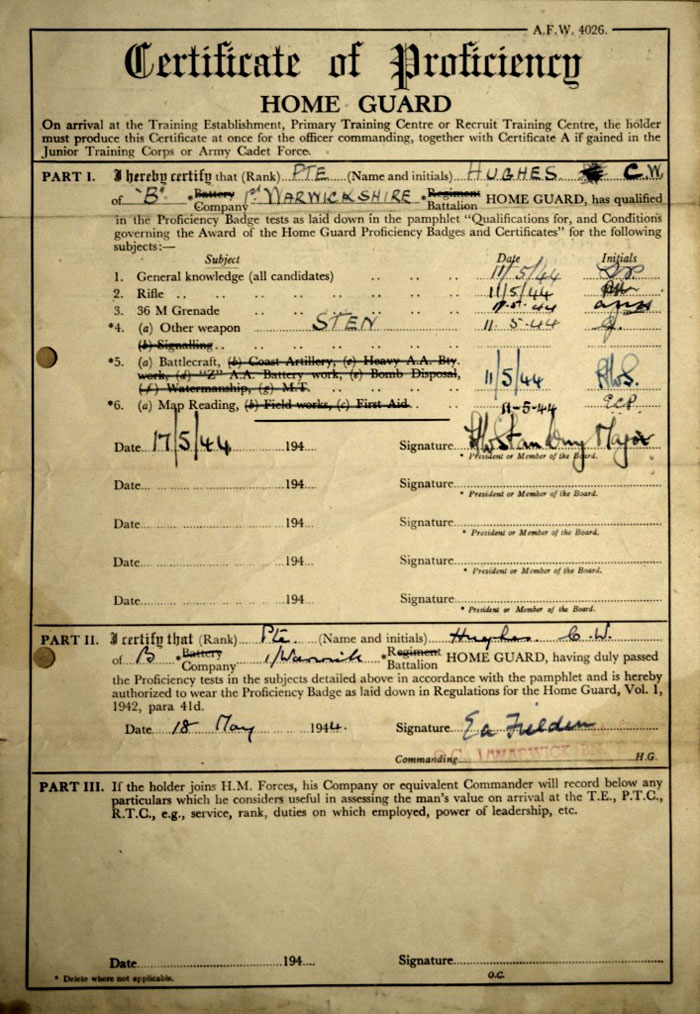 A.F.W. 4026.
Certificate of Proficiency
HOME GUARD
On arrival at the Training Establishment, Primary Training Centre or Recruit Training Centre, the holder
must produce this Certificate at once for the officer commanding, together with Certificate A if gained in the
Junior Training Corps or Army Cadet Force.
PART I. I hereby certify that (Rank) PTE (Name and initials) HUGHES C.W.
of "B" *Battery Company 1st WARWICKSHIRE *Regiment Battalion HOME GUARD, has qualified
in the Proficiency Badge tests as laid down in the pamphlet "Qualifications for, and Conditions
governing the Award of the Home Guard Proficiency Badges and Certificates" for the following
subjects:—
Subject Date Initials
1. General knowledge (all candidates) 11/5/44
2. Rifle 11/5/44
3. 36 M Grenade
*4. (a) Other weapon STEN 11-5-44
(b) Signalling
*5. (a) Battlecraft, (b) Coast Artillery, (c) Heavy A.A. Bty.
work, (d) "Z" A.A. Battery work, (e) Bomb Disposal,
(f) Watermanship, (g) M.T. 11/5/44
*6. (a) Map Reading, (b) Field works, (c) First Aid 11-5-44 ECP.
Date 17/5/44 194 Signature Major
* President or Member of the Board.
Date 194 Signature
* President or Member of the Board.
Date 194 Signature
* President or Member of the Board.
Date 194 Signature
* President or Member of the Board.
Date 194 Signature
* President or Member of the Board.
PART II. I certify that (Rank) Pte. (Name and initials) Hughes. C.W.
of B *Battery Company 1/Warwick *Regiment Battalion HOME GUARD, having duly passed
the Proficiency tests in the subjects detailed above in accordance with the pamphlet and is hereby
authorized to wear the Proficiency Badge as laid down in Regulations for the Home Guard, Vol. 1,
1942, para 41d.
Date 18 May 1944. Signature Ea Fielden
Commanding O.C. 1/WARWICK BN. H.G.
PART III. If the holder joins H.M. Forces, his Company or equivalent Commander will record below any
particulars which he considers useful in assessing the man's value on arrival at the T.E., P.T.C.,
R.T.C., e.g., service, rank, duties on which employed, power of leadership, etc.
Date 194 Signature
* Delete where not applicable. O.C.